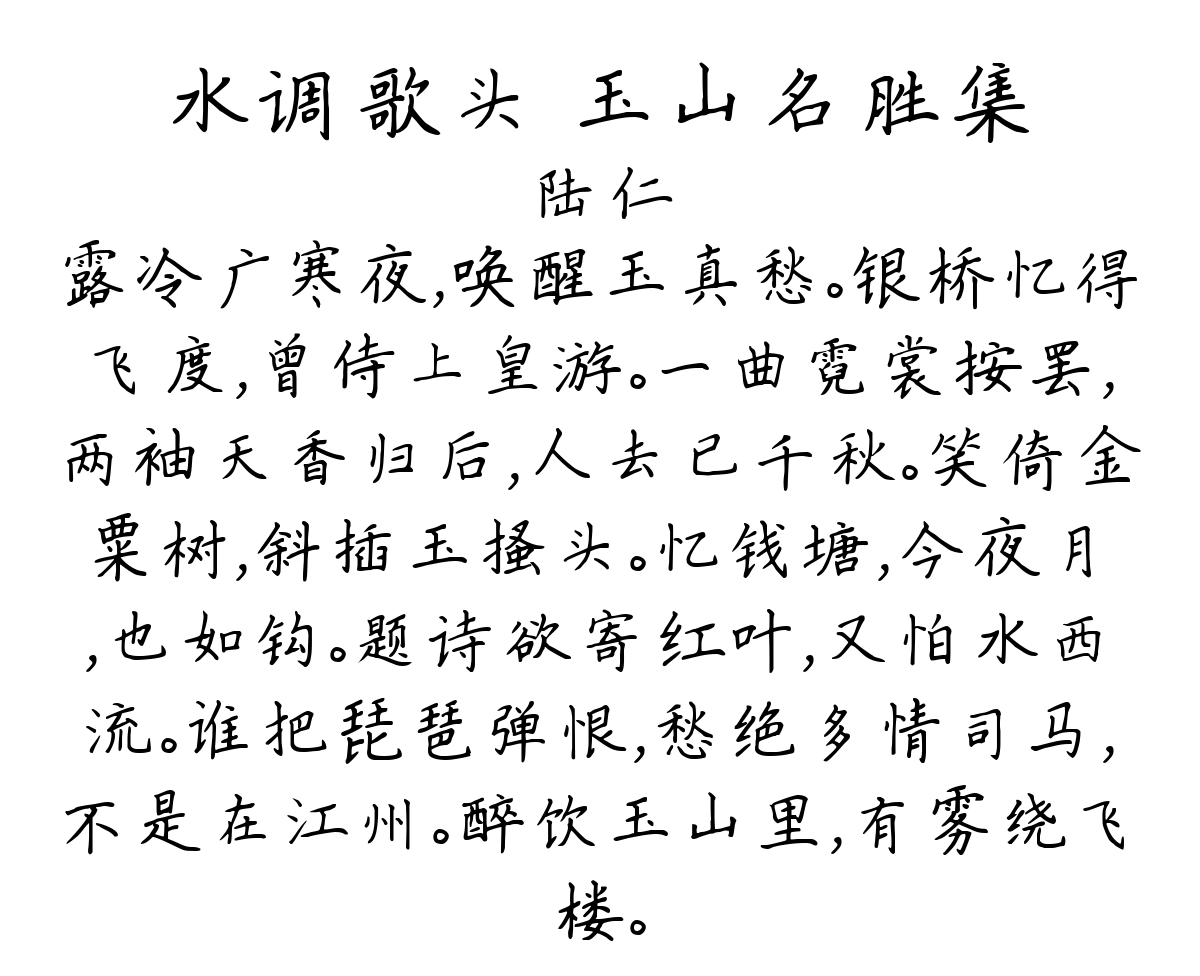 水调歌头 玉山名胜集
陆仁
露冷广寒夜,唤醒玉真愁。银桥忆得
飞度,曾侍上皇游。一曲霓裳按罢,
两袖天香归后,人去已千秋。笑倚金
粟树,斜插玉搔头。忆钱塘,今夜月
,也如钩。题诗欲寄红叶,又怕水西
流。谁把琵琶弹恨,愁绝多情司马,
不是在江州。醉饮玉山里,有雾绕飞
楼。